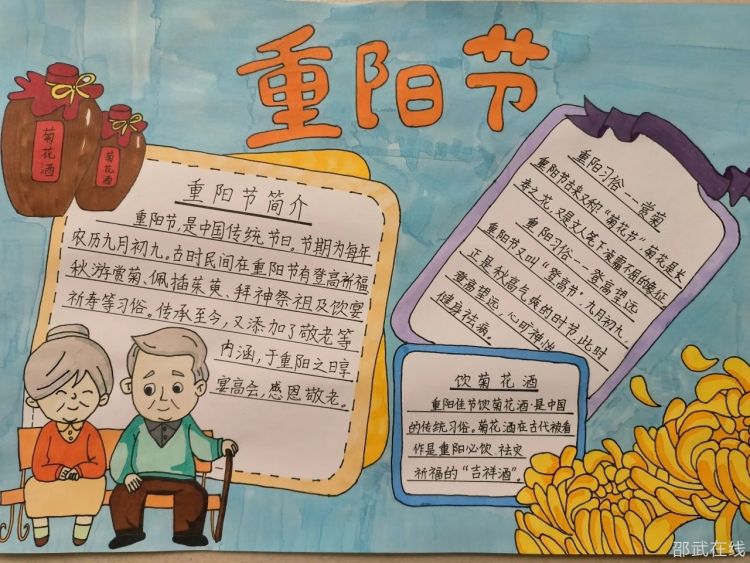 重阳节
菊花酒
菊花酒
重阳节简介
重阳节,是中国传统节日。节期为每年
农历九月初九。古时民间在重阳节有登高祈福
秋游赏菊、佩插茱萸、拜神祭祖及饮宴
祈寿等习俗。传承至今,又添加了敬老等
内涵,于重阳之日享
宴高会,感恩敬老。
重阳习俗--赏菊
重阳节古来又称“菊花节”菊花是长
寿之花,又是文人笔下凌霜不屈的象征
重阳习俗--登高望远
重阳节又叫“登高节”,九月初九,
正是秋高气爽的时节,此时
登高望远,心旷神怡
健身祛病。
饮菊花酒
重阳佳节饮菊花酒,是中国
的传统习俗。菊花酒在古代被看
作是重阳必饮、祛灾
祈福的“吉祥酒”。
邵武在线